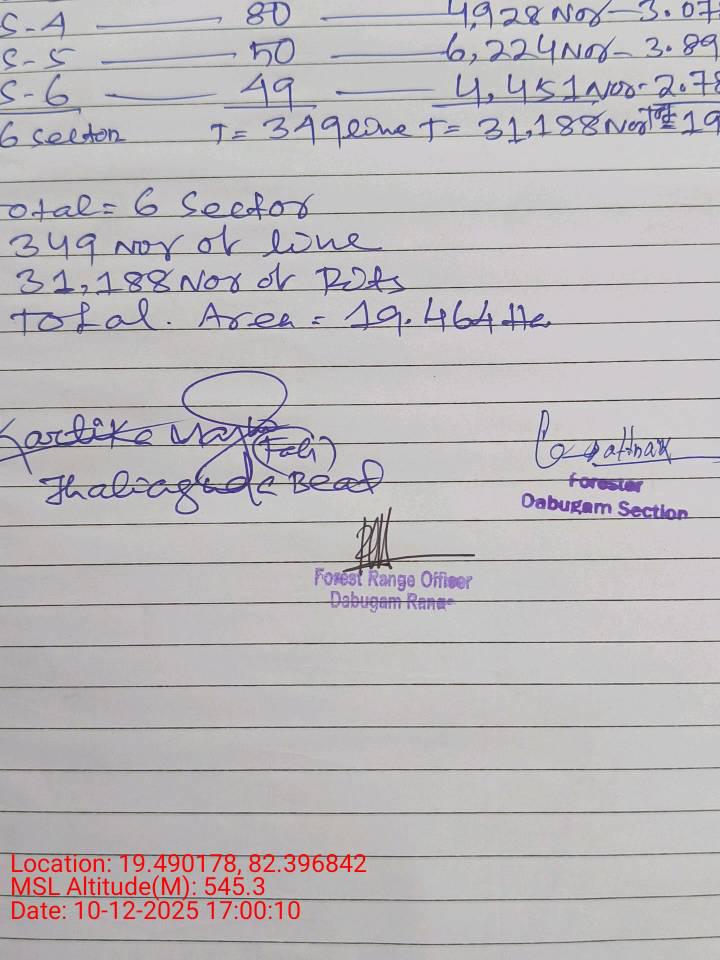 S-4 — 80 — 4,928 Nos - 3.07
S-5 — 50 — 6,224 Nos - 3.89
S-6 — 49 — 4,451 Nos - 2.78
6 sector T = 349 line T = 31,188 Nos Tot = 19
otal = 6 Sector
349 Nos of line
31,188 Nos of Pits
Total. Area = 19.464 Ha
Kartika
Jhaliaguda Beat
Forester
Dabugam Section
Forest Range Officer
Dabugam Range
Location: 19.490178, 82.396842
MSL Altitude(M): 545.3
Date: 10-12-2025 17:00:10